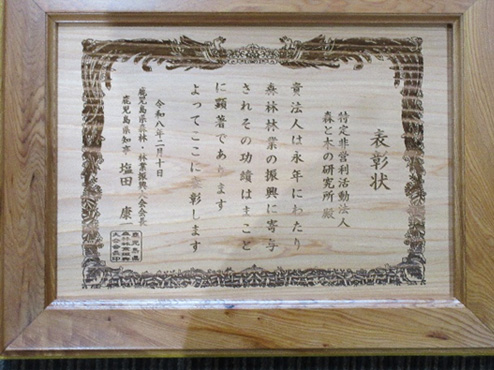 表彰状
特定非営利活動法人
森と木の研究所 殿
貴法人は永年にわたり
森林林業の振興に寄与
されその功績はまこと
に顕著であります
よってここに表彰します
令和八年二月十日
鹿児島県森林・林業振興大会会長
鹿児島県知事 塩田 康一